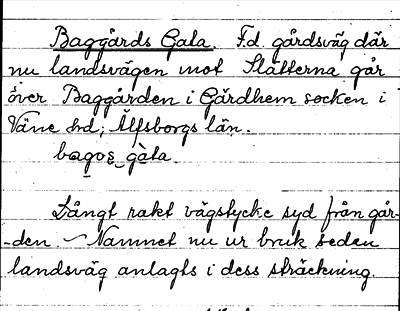 Baggårds Gala. F.d. gårdsväg där
nu landsvägen mot Slätterna går
över Baggården i Gärdhem socken i
Väne hd; Älfsborgs län.
bagos gàla.
Långt rakt vägstycke syd från går-
-den. Namnet nu ur bruk sedan
landsväg anlagts i dess sträckning.